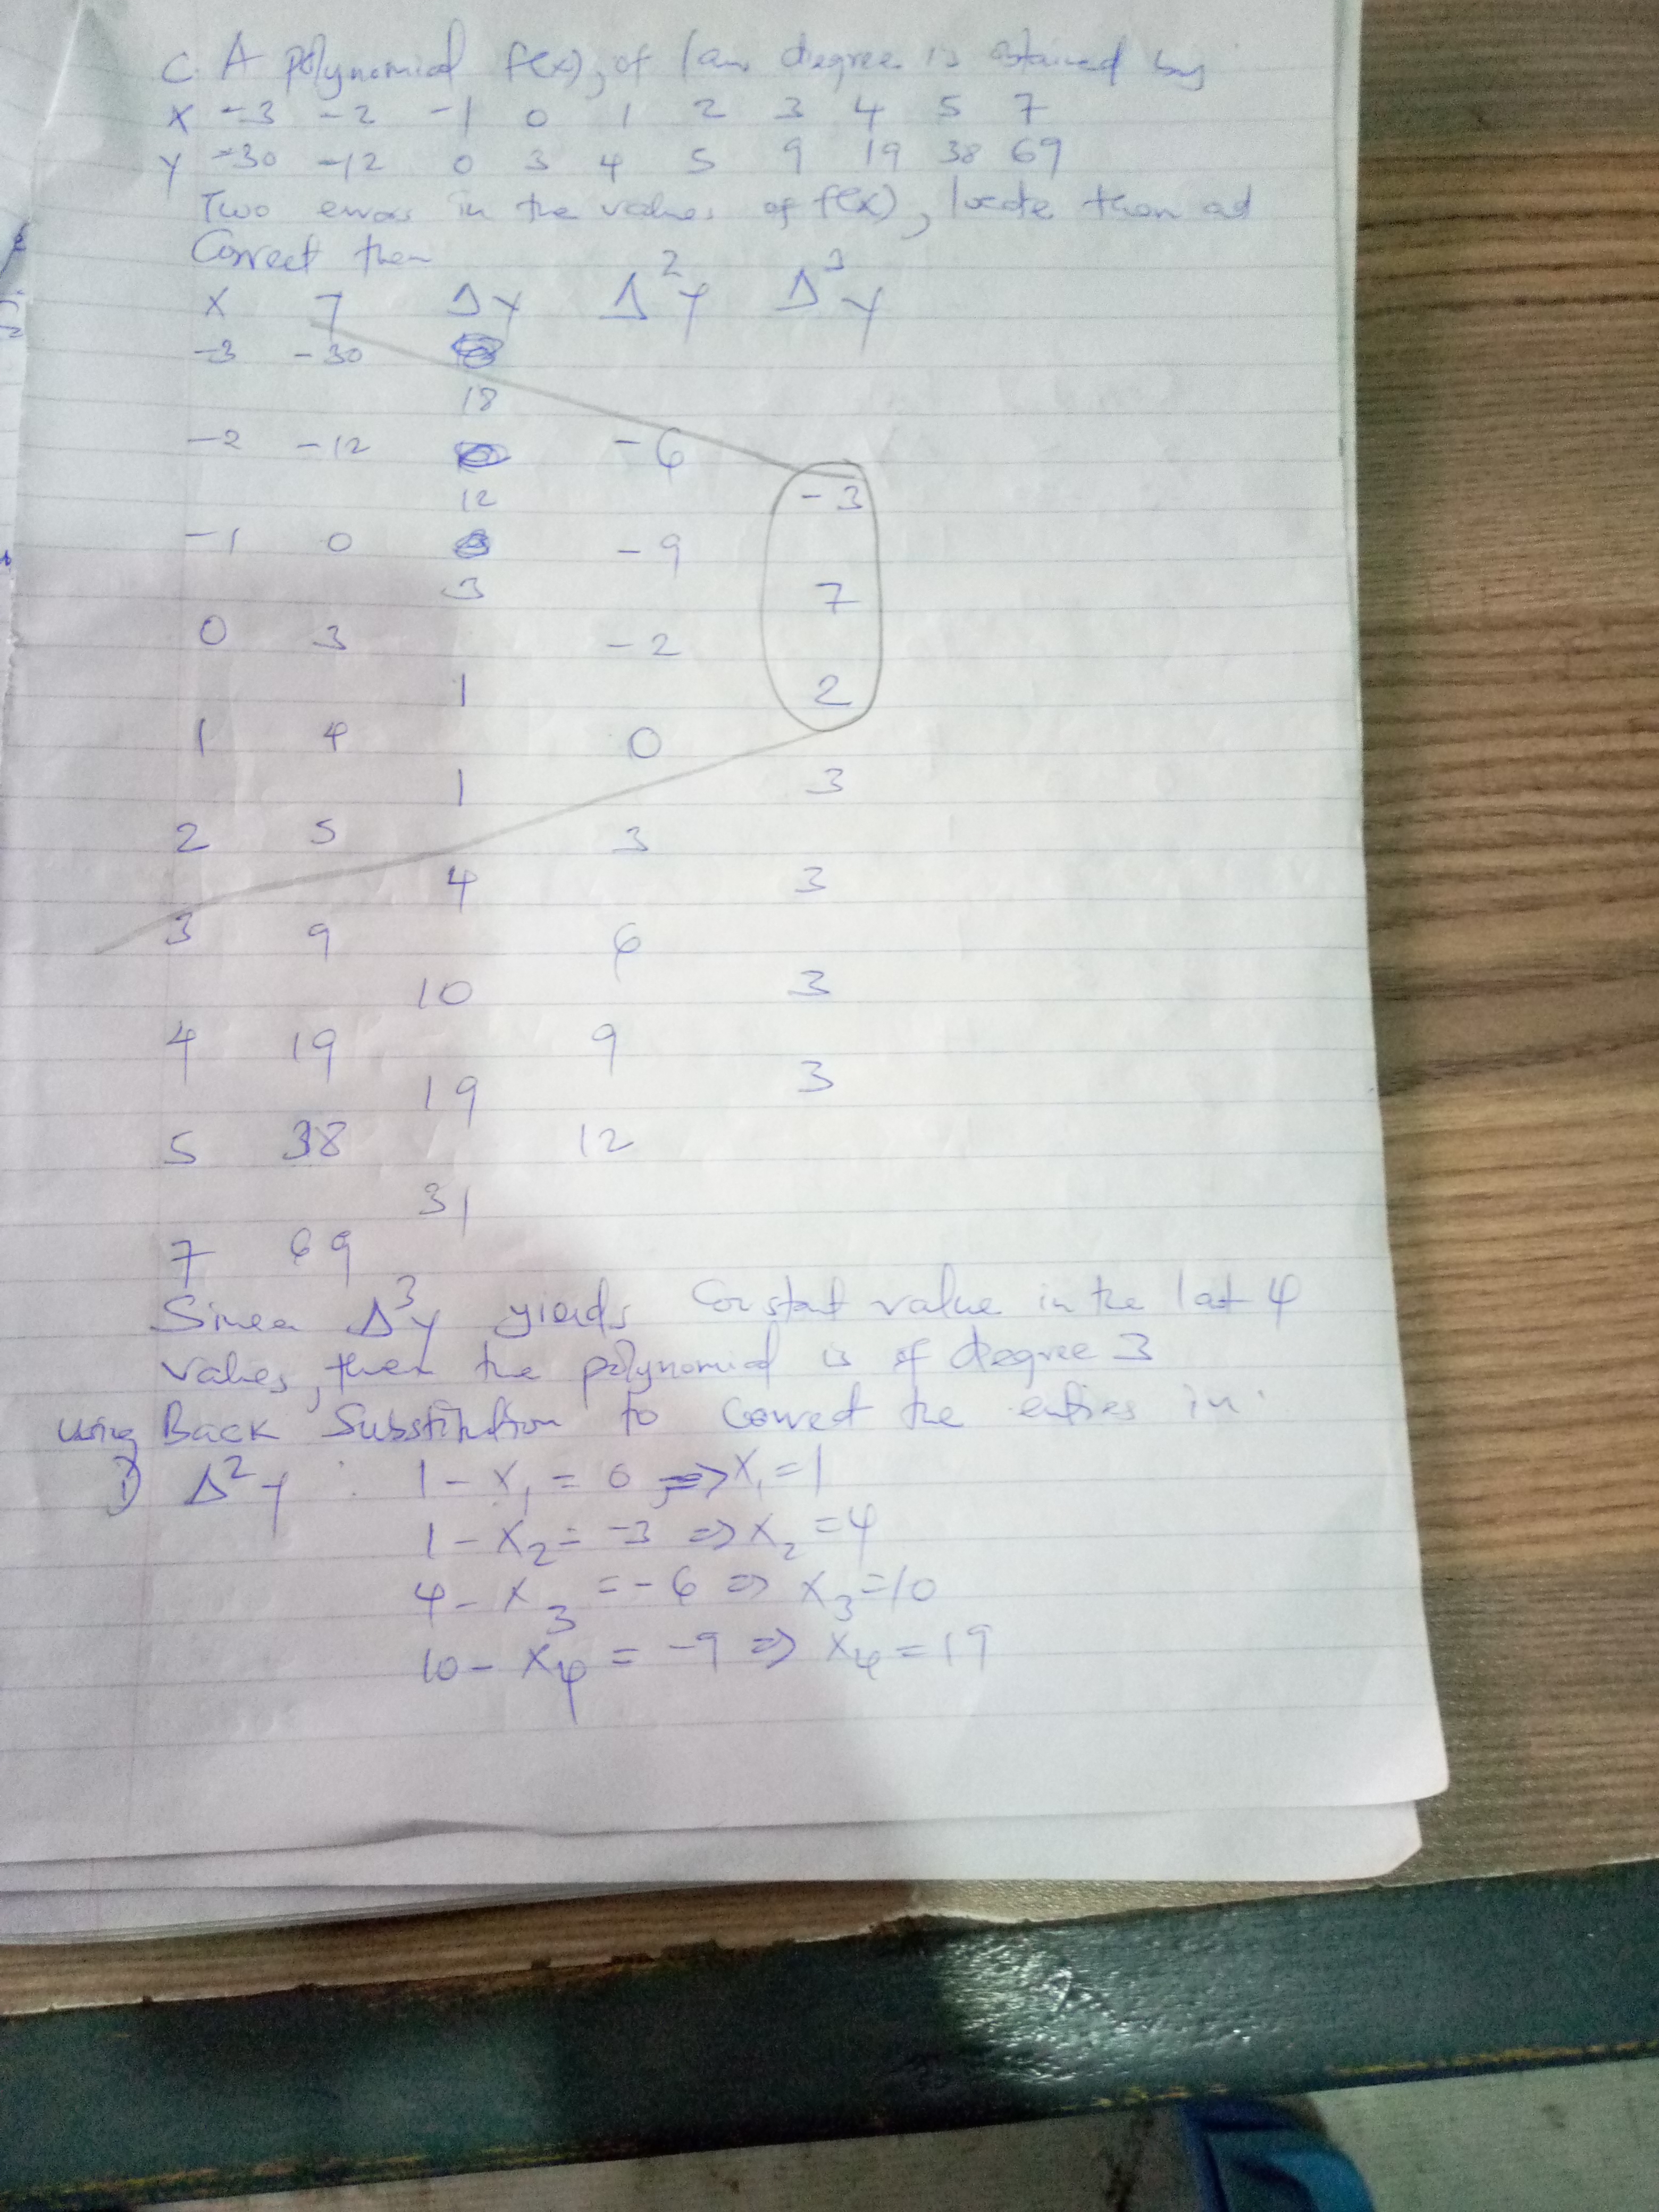 C. A polynomial f(x), of low degree is obtained by
X -3 -2 -1 0 1 2 3 4 5 7
Y -30 -12 0 3 4 5 9 19 38 69
Two errors in the values of f(x), locate them ad
Correct then
X Y Δy Δ²y Δ³y
-3 -30
18
-2 -12 -6
12 -3
-1 0 -9
3 7
0 3 -2
1 2
1 4 0
1 3
2 5 3
4 3
3 9 6
10 3
4 19 9
19 3
5 38 12
31
7 69
Since Δ³y yields Constant value in the last 4
Values, then the polynomial is of degree 3
using Back Substitution to Correct the entries in
i) Δ²y : 1 - X₁ = 0 => X₁ = 1
1 - X₂ = -3 => X₂ = 4
4 - X₃ = -6 => X₃ = 10
10 - X₄ = -9 => X₄ = 19